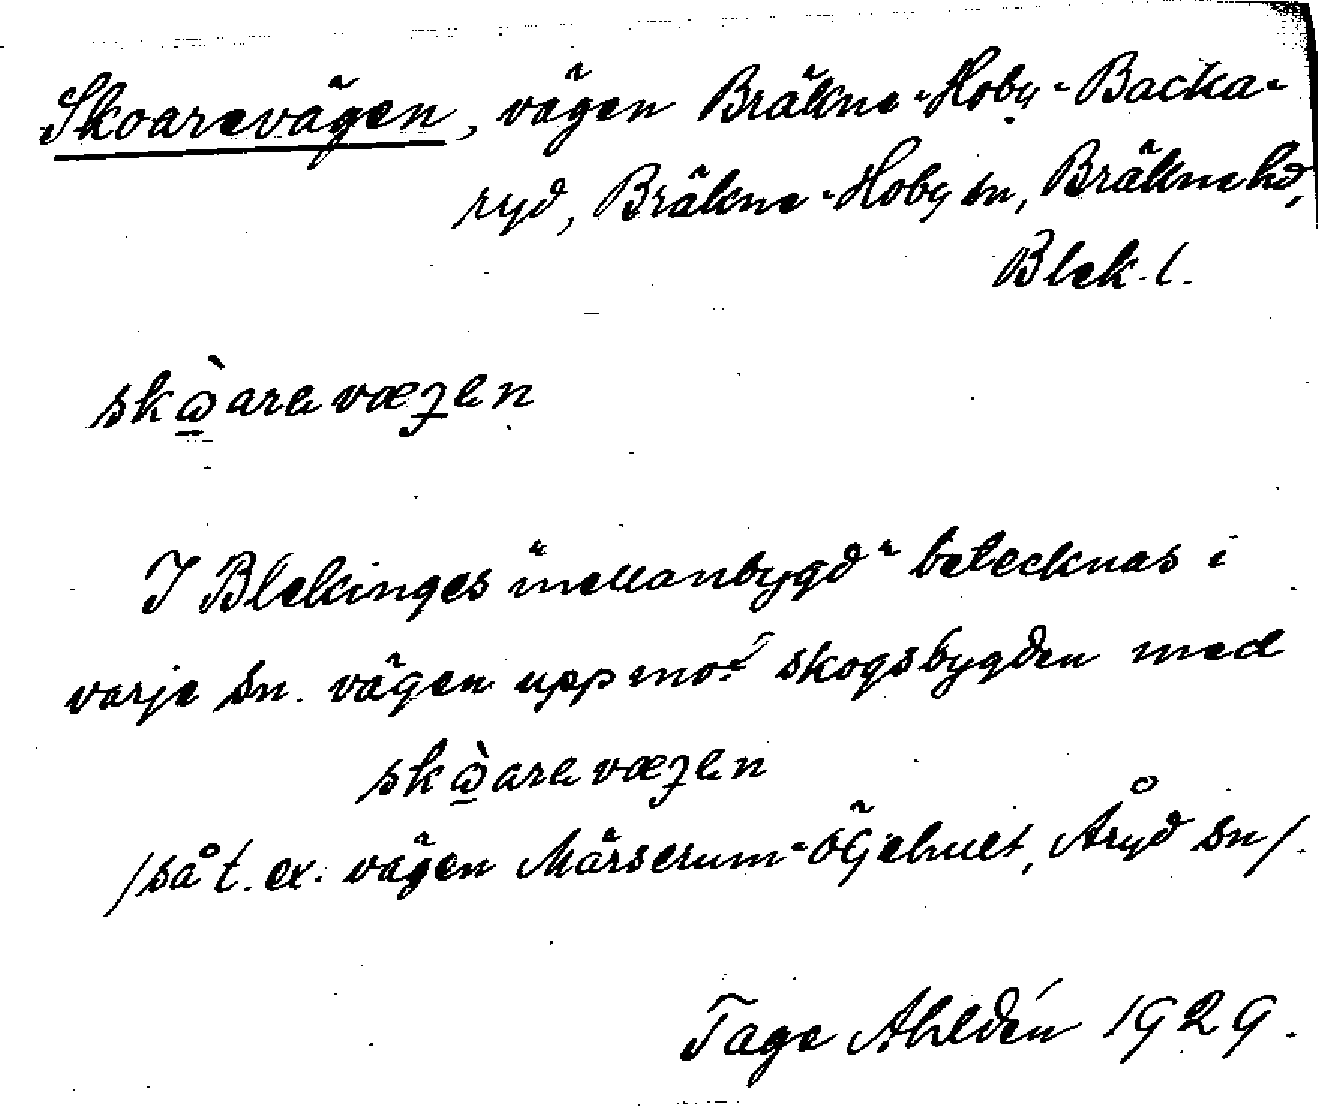 Skoarevägen, vägen Bräkne-Hoby-Backa-
ryd, Bräkne-Hoby sn, Bräkne hd,
Blek. l.
skὼarevæȝen
I Blekinges "mellanbygd" betecknas i
varje sn. vägen upp mot skogsbygden med
skὼarevæȝen
/så t. ex. vägen Mörserum-Ögehult, Åryd sn/.
Tage Ahldén 1929.